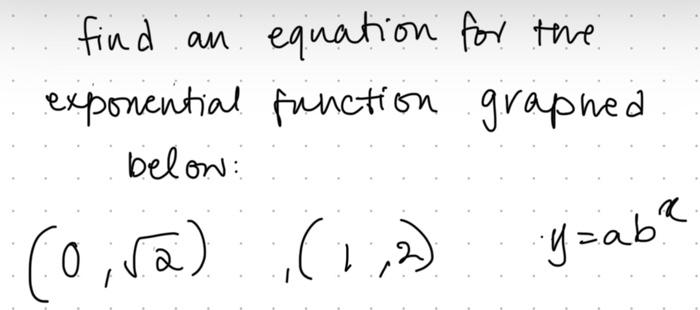 find an equation for the
exponential function graphed
below:
(0,√2) ,(1,2) y=abˣ